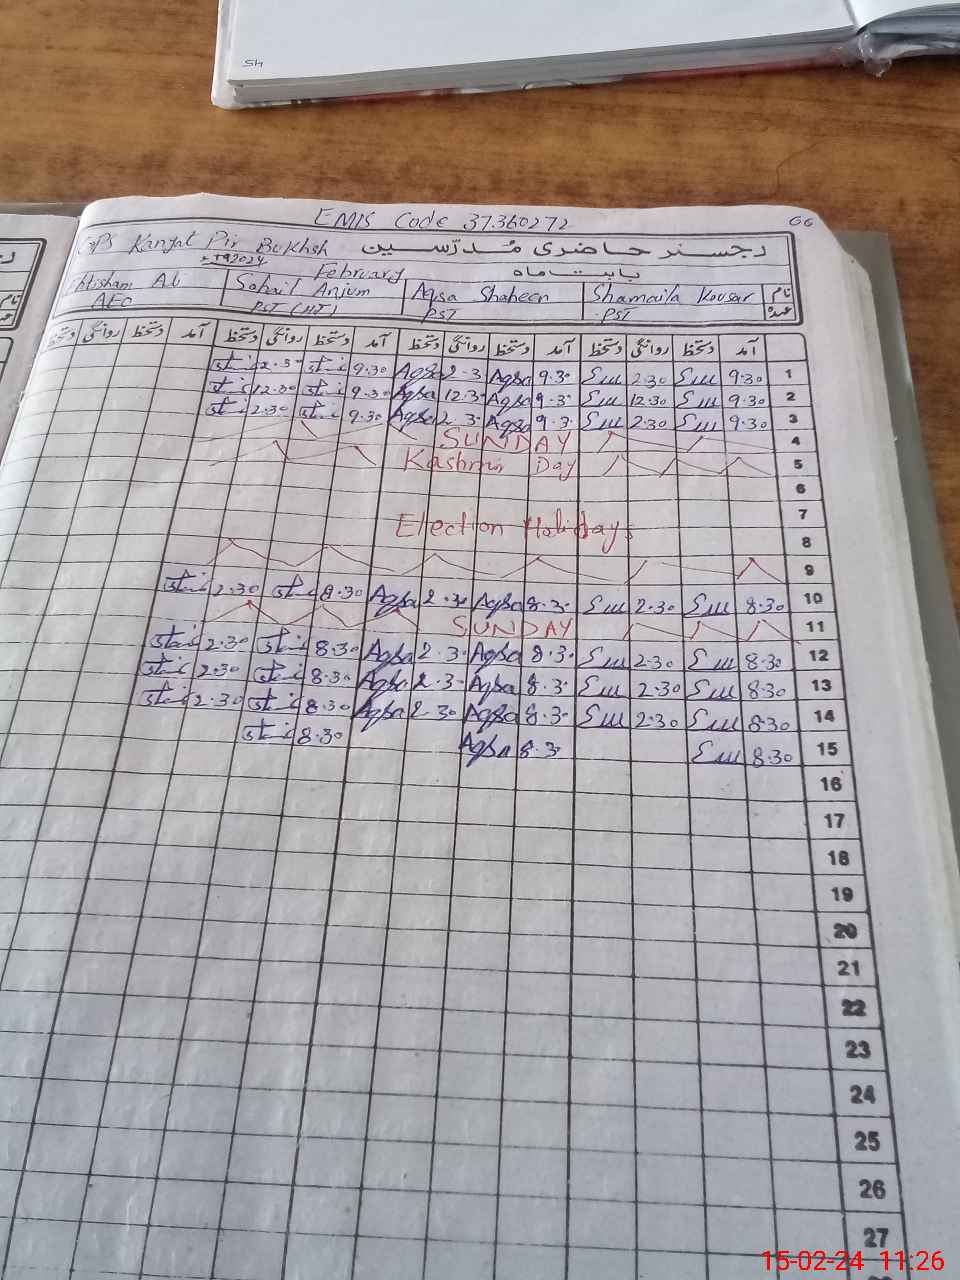 45
EMIS Code 37360272
66
GPS Kangat Pir Bukhsh رجسٹر حاضری مُدرّسین
February بابت ماہ
Ihtisham Ali Sohail Anjum Aqsa Shaheen Shamaila Kousar نام
AEO PST (HT) PST PST عہدہ
دستخط روانگی دستخط آمد دستخط روانگی دستخط آمد دستخط روانگی دستخط آمد دستخط روانگی دستخط آمد
2.30 9.30 Aqsa 2.3 Aqsa 9.30 2.30 9.30 1
12.30 9.30 Aqsa 12.3 Aqsa 9.3 12.30 9.30 2
2.30 9.30 Aqsa 2.3 Aqsa 9.3 2.30 9.30 3
SUNDAY 4
Kashmir Day 5
6
Election Holidays 7
8
9
2.30 8.30 Aqsa 2.30 Aqsa 8.3 2.30 8.30 10
SUNDAY 11
2.30 8.30 Aqsa 2.3 Aqsa 8.3 2.30 8.30 12
2.30 8.30 Aqsa 2.3 Aqsa 8.3 2.30 8.30 13
2.30 8.30 Aqsa 2.30 Aqsa 8.3 2.30 8.30 14
8.30 Aqsa 8.3 8.30 15
16
17
18
19
20
21
22
23
24
25
26
27
15-02-24 11:26